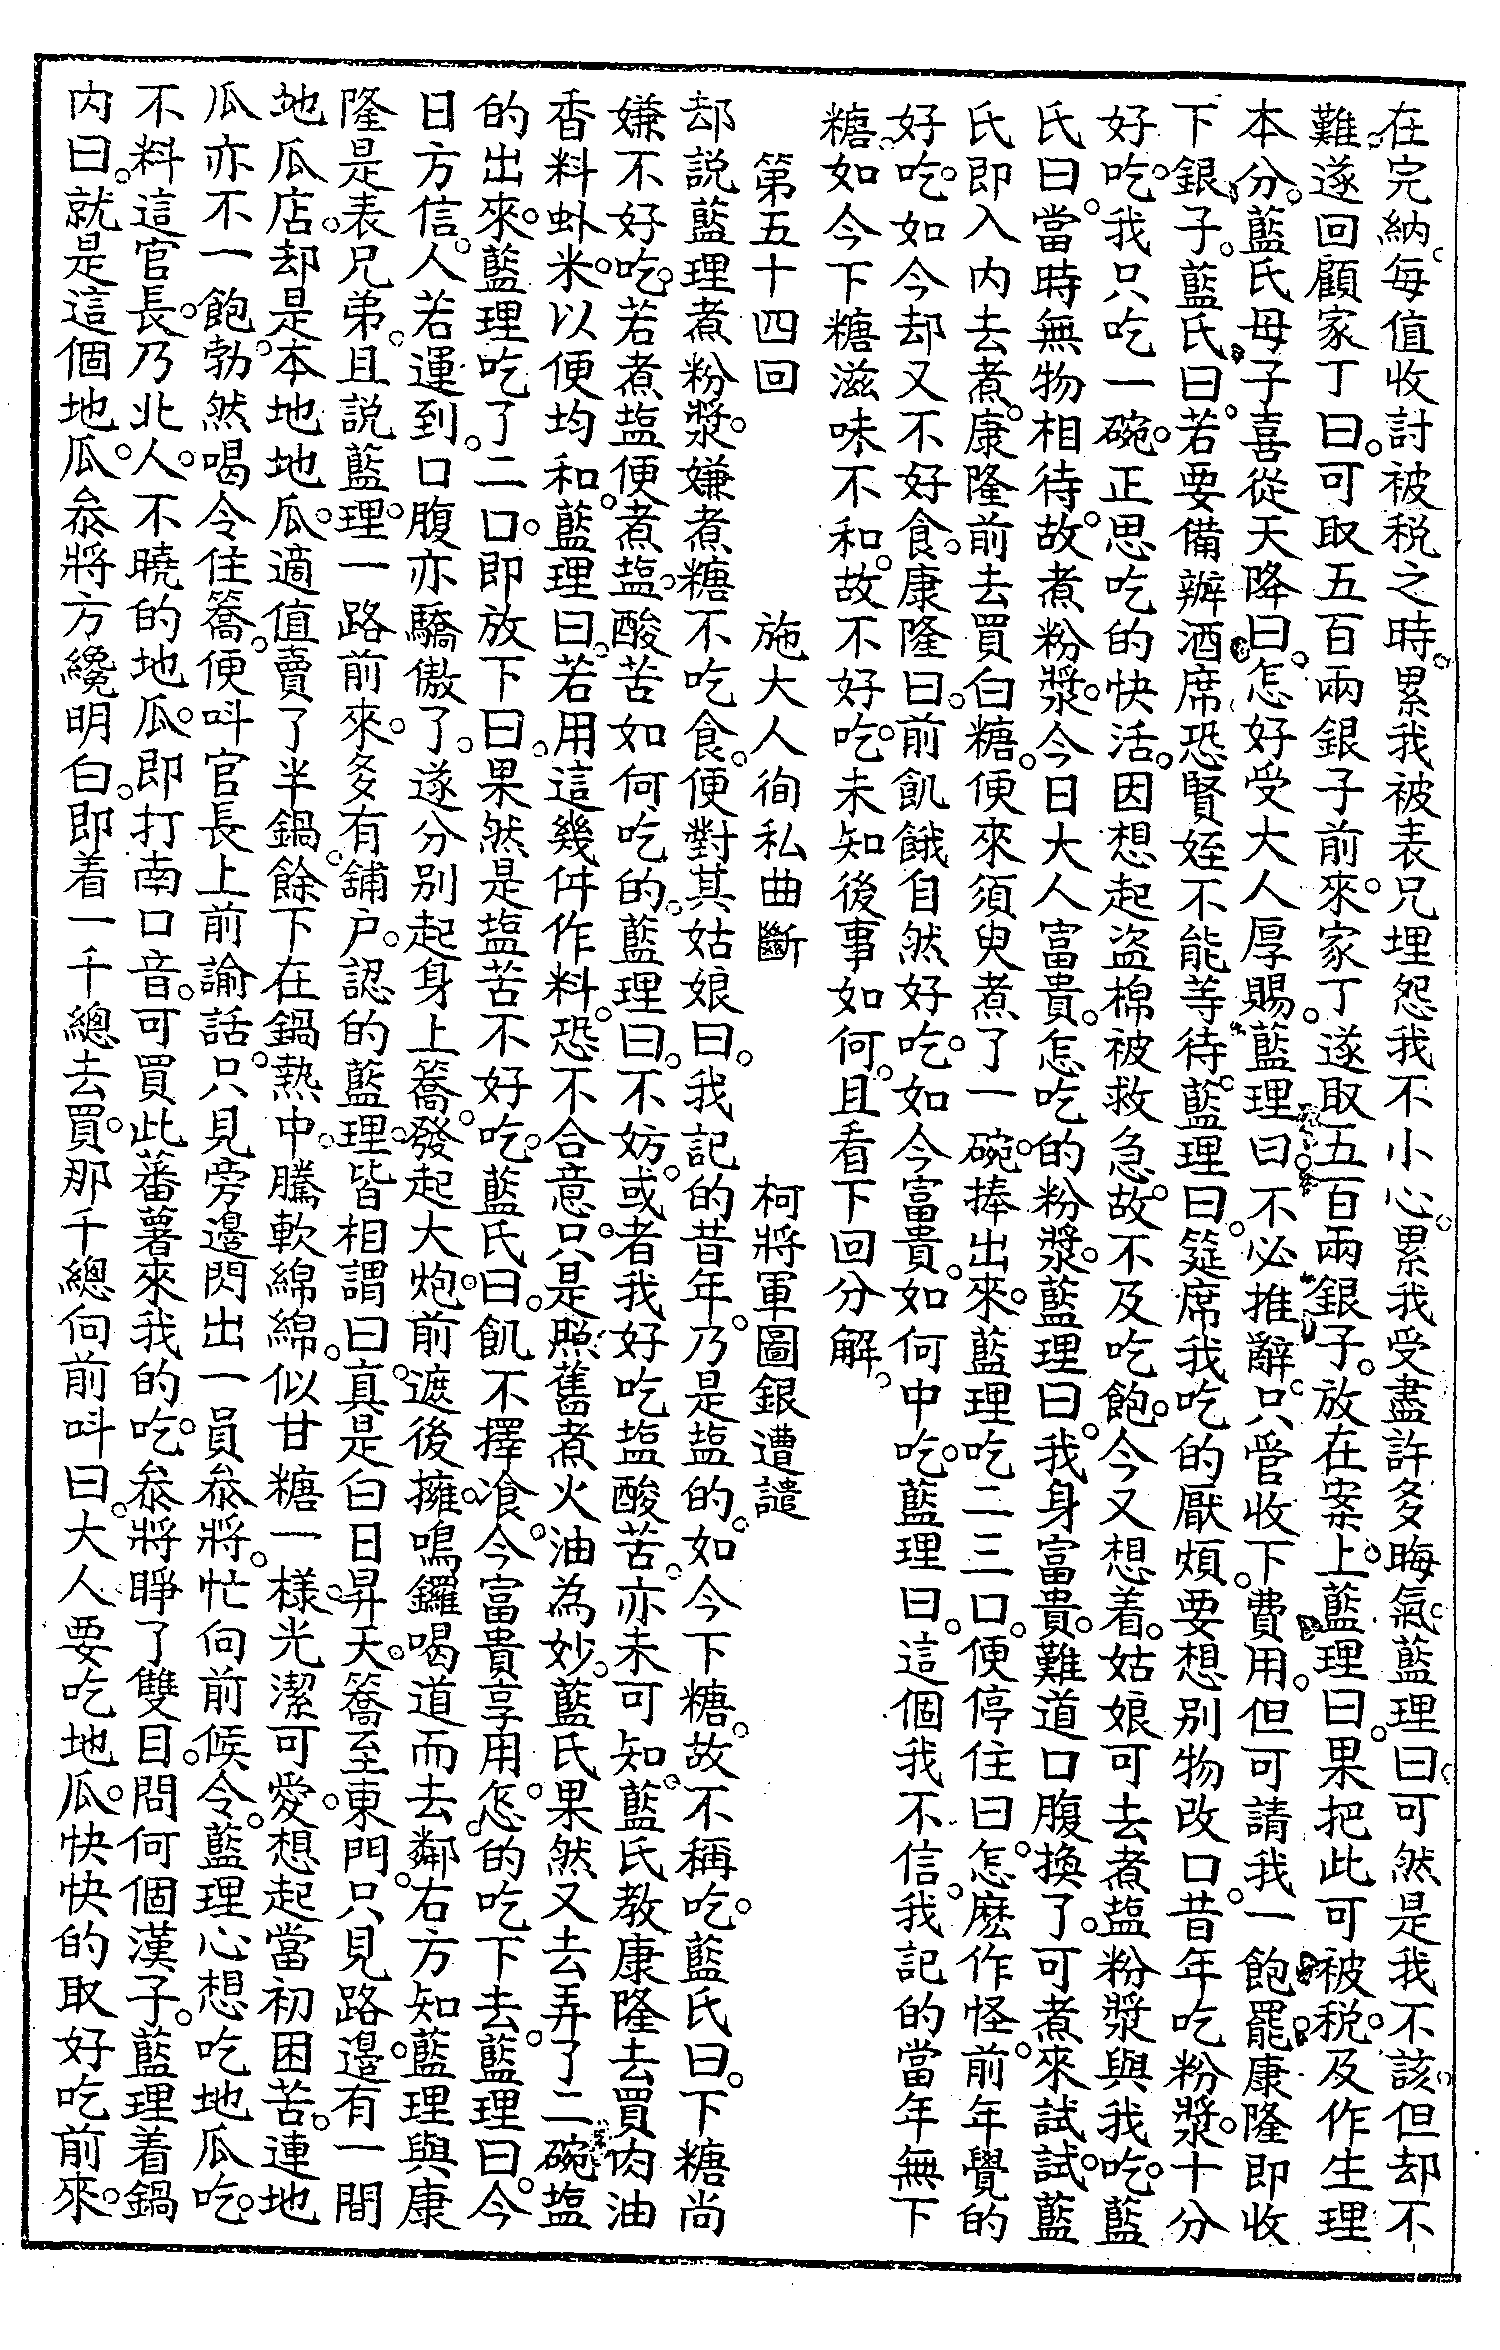 在完納。每值收討被税之時。累我被表兄埋怨我不小心。累我受盡許多晦氣。藍理曰。可然是我不該。但却不
難。遂回顧家丁曰。可取五百兩銀子前來。家丁遂取五百兩銀子。放在案上。藍理曰。果把此可被税。及作生理
本分。藍氏母子喜從天降曰。怎好受大人厚賜。藍理曰。不必推辭。只管收下。費用。但可請我一飽罷。康隆即收
下銀子。藍氏曰。若要備辦酒席。恐賢姪不能等待。藍理曰。筵席我吃的厭煩。要想别物改口。昔年吃粉漿。十分
好吃。我只吃一碗。正思吃的快活。因想起盗棉被救急。故不及吃飽。今又想着。姑娘可去煮塩粉漿與我吃。藍
氏曰。當時無物相待。故煮粉漿。今日大人富貴。怎吃的粉漿。藍理曰。我身富貴。難道口腹換了。可煮來試試。藍
氏即入内去煮。康隆前去買白糖。便來須臾煮了一碗。捧出來。藍理吃二三口。便停住曰。怎麽作怪。前年覺的
好吃。如今却又不好食。康隆曰。前飢餓自然好吃。如今富貴。如何中吃。藍理曰。這個我不信。我記的當年無下
糖。如今下糖滋味不和。故不好吃。未知後事如何。且看下回分解。
第五十四回　施大人徇私曲斷　柯將軍圖銀遭譴
却説藍理煮粉漿。嫌煮糖不吃食。便對其姑娘曰。我記的昔年。乃是塩的。如今下糖。故不稱吃。藍氏曰。下糖尚
嫌不好吃。若煮塩便煮塩。酸苦如何吃的。藍理曰。不妨。或者我好吃塩酸苦。亦未可知。藍氏教康隆去買肉油
香料虾米。以便均和。藍理曰。若用這幾件作料。恐不合意。只是照舊煮火油為妙。藍氏果然又去弄了二碗塩
的出來。藍理吃了二口。即放下曰。果然是塩苦不好吃。藍氏曰。飢不擇飡。今富貴享用。怎的吃下去。藍理曰。今
日方信。人若運到。口腹亦驕傲了。遂分别起身上簥。發起大炮。前遮後擁。鳴鑼喝道而去。鄰右方知。藍理與康
隆是表兄弟。且説藍理。一路前來。多有舖户。認的藍理。皆相謂曰。真是白日昇天。簥至東門。只見路邉有一間
地瓜店。却是本地地瓜。適值賣了半鍋。餘下在鍋熱中。騰軟綿綿。似甘糖一樣。光潔可愛。想起當初困苦。連地
瓜亦不一飽。勃然喝令住簥。便呌官長上前諭話。只見旁邉閃出一員叅將。忙向前候令。藍理心想吃地瓜吃。
不料這官長。乃北人。不曉的地瓜。即打南口音。可買此蕃薯來我的吃。叅將睜了雙目。問何個漢子。藍理着鍋
内曰。就是這個地瓜。叅將方纔明白。即着一千總去買。那千總向前呌曰。大人要吃地瓜。快快的取好吃前來。